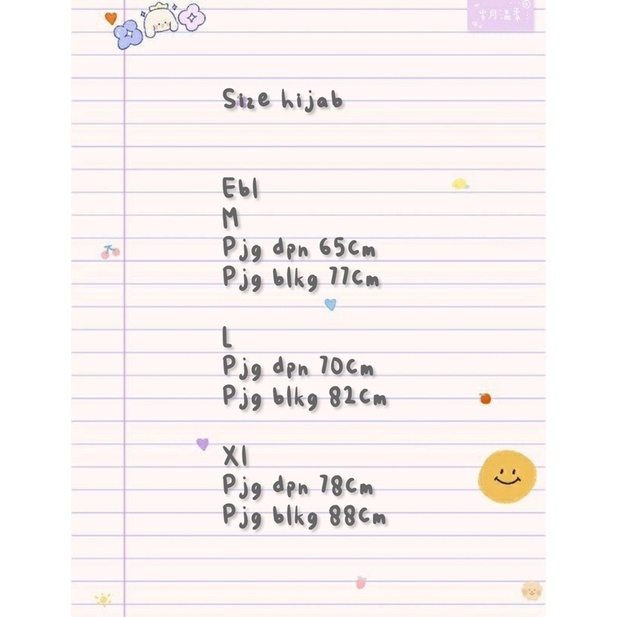 Size hijab
Ebl
M
Pjg dpn 65cm
Pjg blkg 77cm
L
Pjg dpn 70cm
Pjg blkg 82cm
Xl
Pjg dpn 78cm
Pjg blkg 88cm